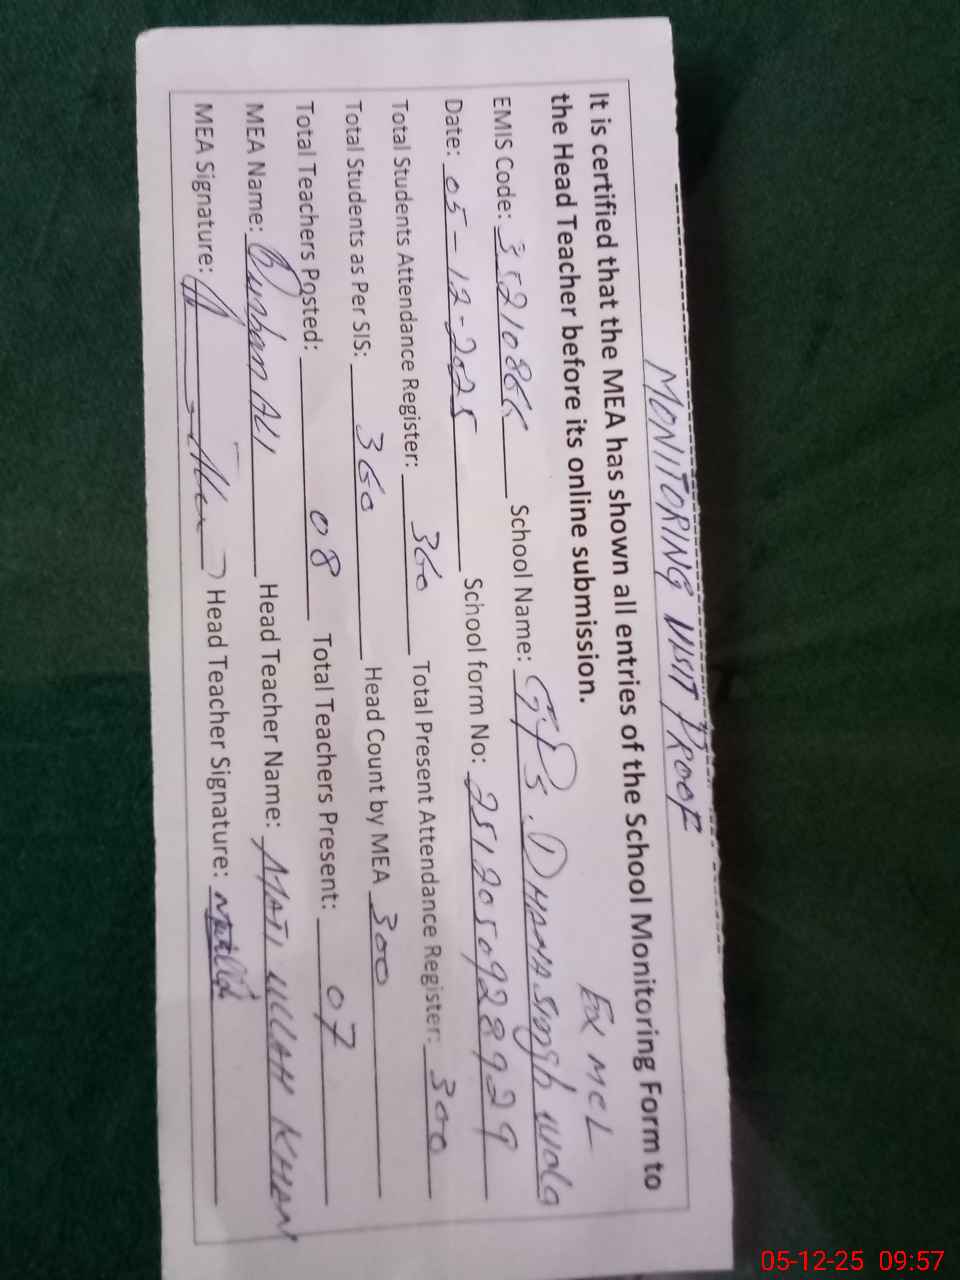 MONITORING VISIT PROOF
It is certified that the MEA has shown all entries of the School Monitoring Form to
the Head Teacher before its online submission. Ex MCL
EMIS Code: 35210866 School Name: GPS. DHANA Singh wala
Date: 05-12-2025 School form No: 2512050928929
Total Students Attendance Register: 360 Total Present Attendance Register: 300
Total Students as Per SIS: 360 Head Count by MEA 300
Total Teachers Posted: 08 Total Teachers Present: 07
MEA Name: Burhan Ali Head Teacher Name: MATI ULLAH KHAN
MEA Signature: Head Teacher Signature:
05-12-25 09:57